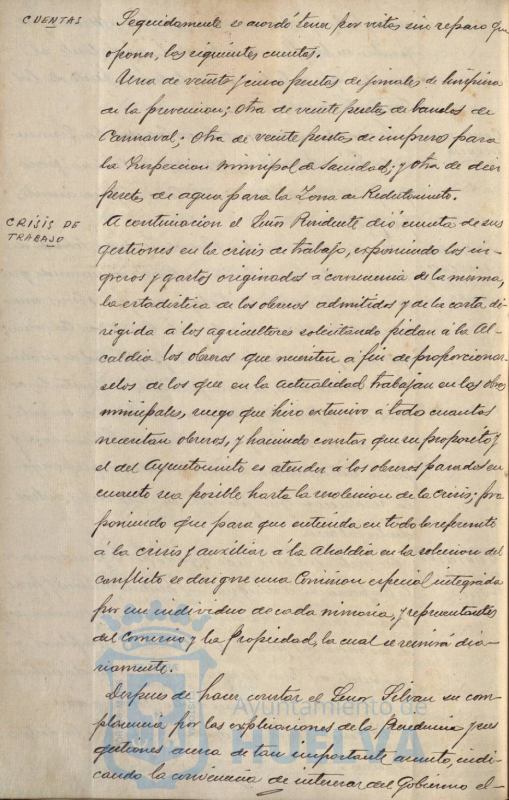 CUENTAS
Seguidamente se acordó tener por vistas sin reparo que
oponer, las siguientes cuentas.
Una de veinte y cinco pesetas de jornales de limpieza
de la prevencion; otra de veinte pesetas de bandos de
Carnaval; otra de veinte pesetas de impresos para
la Inspeccion municipal de Sanidad; y otra de diez
pesetas de agua para la Zona de Reclutamiento.
CRISIS DE
TRABAJO
A continuacion el Señor Presidente dió cuenta de sus
gestiones en la crisis de trabajo, exponiendo los in-
gresos y gastos originados á consecuencia de la misma,
la estadistica de los obreros admitidos y de la carta di-
rigida a los agricultores solicitando pidan á la Al-
caldia los obreros que necesiten a fin de proporcionar-
selos de los que en la actualidad trabajan en las obras
municipales, ruego que hizo extensivo a todo cuantos
necesitan obreros, y haciendo constar que su proposito y
el del Ayuntamiento es atender á los obreros parados en
cuanto sea posible hasta la resolucion de la crisis; pro
poniendo que para que entienda en todo lo referente
á la crisis y auxiliar á la Alcaldia en la solucion del
conflicto se designe una Comision especial integrada
por un individuo de cada minoria, y representantes
del Comercio y la Propiedad, la cual se reunirá dia-
riamente.
Despues de hacer constar el Señor Silvan su com-
placencia por las explicaciones de la Presidencia y sus
gestiones acerca de tan importante asunto, indi-
cando la conveniencia de interesar del Gobierno el-
Ayuntamiento de
HUELVA